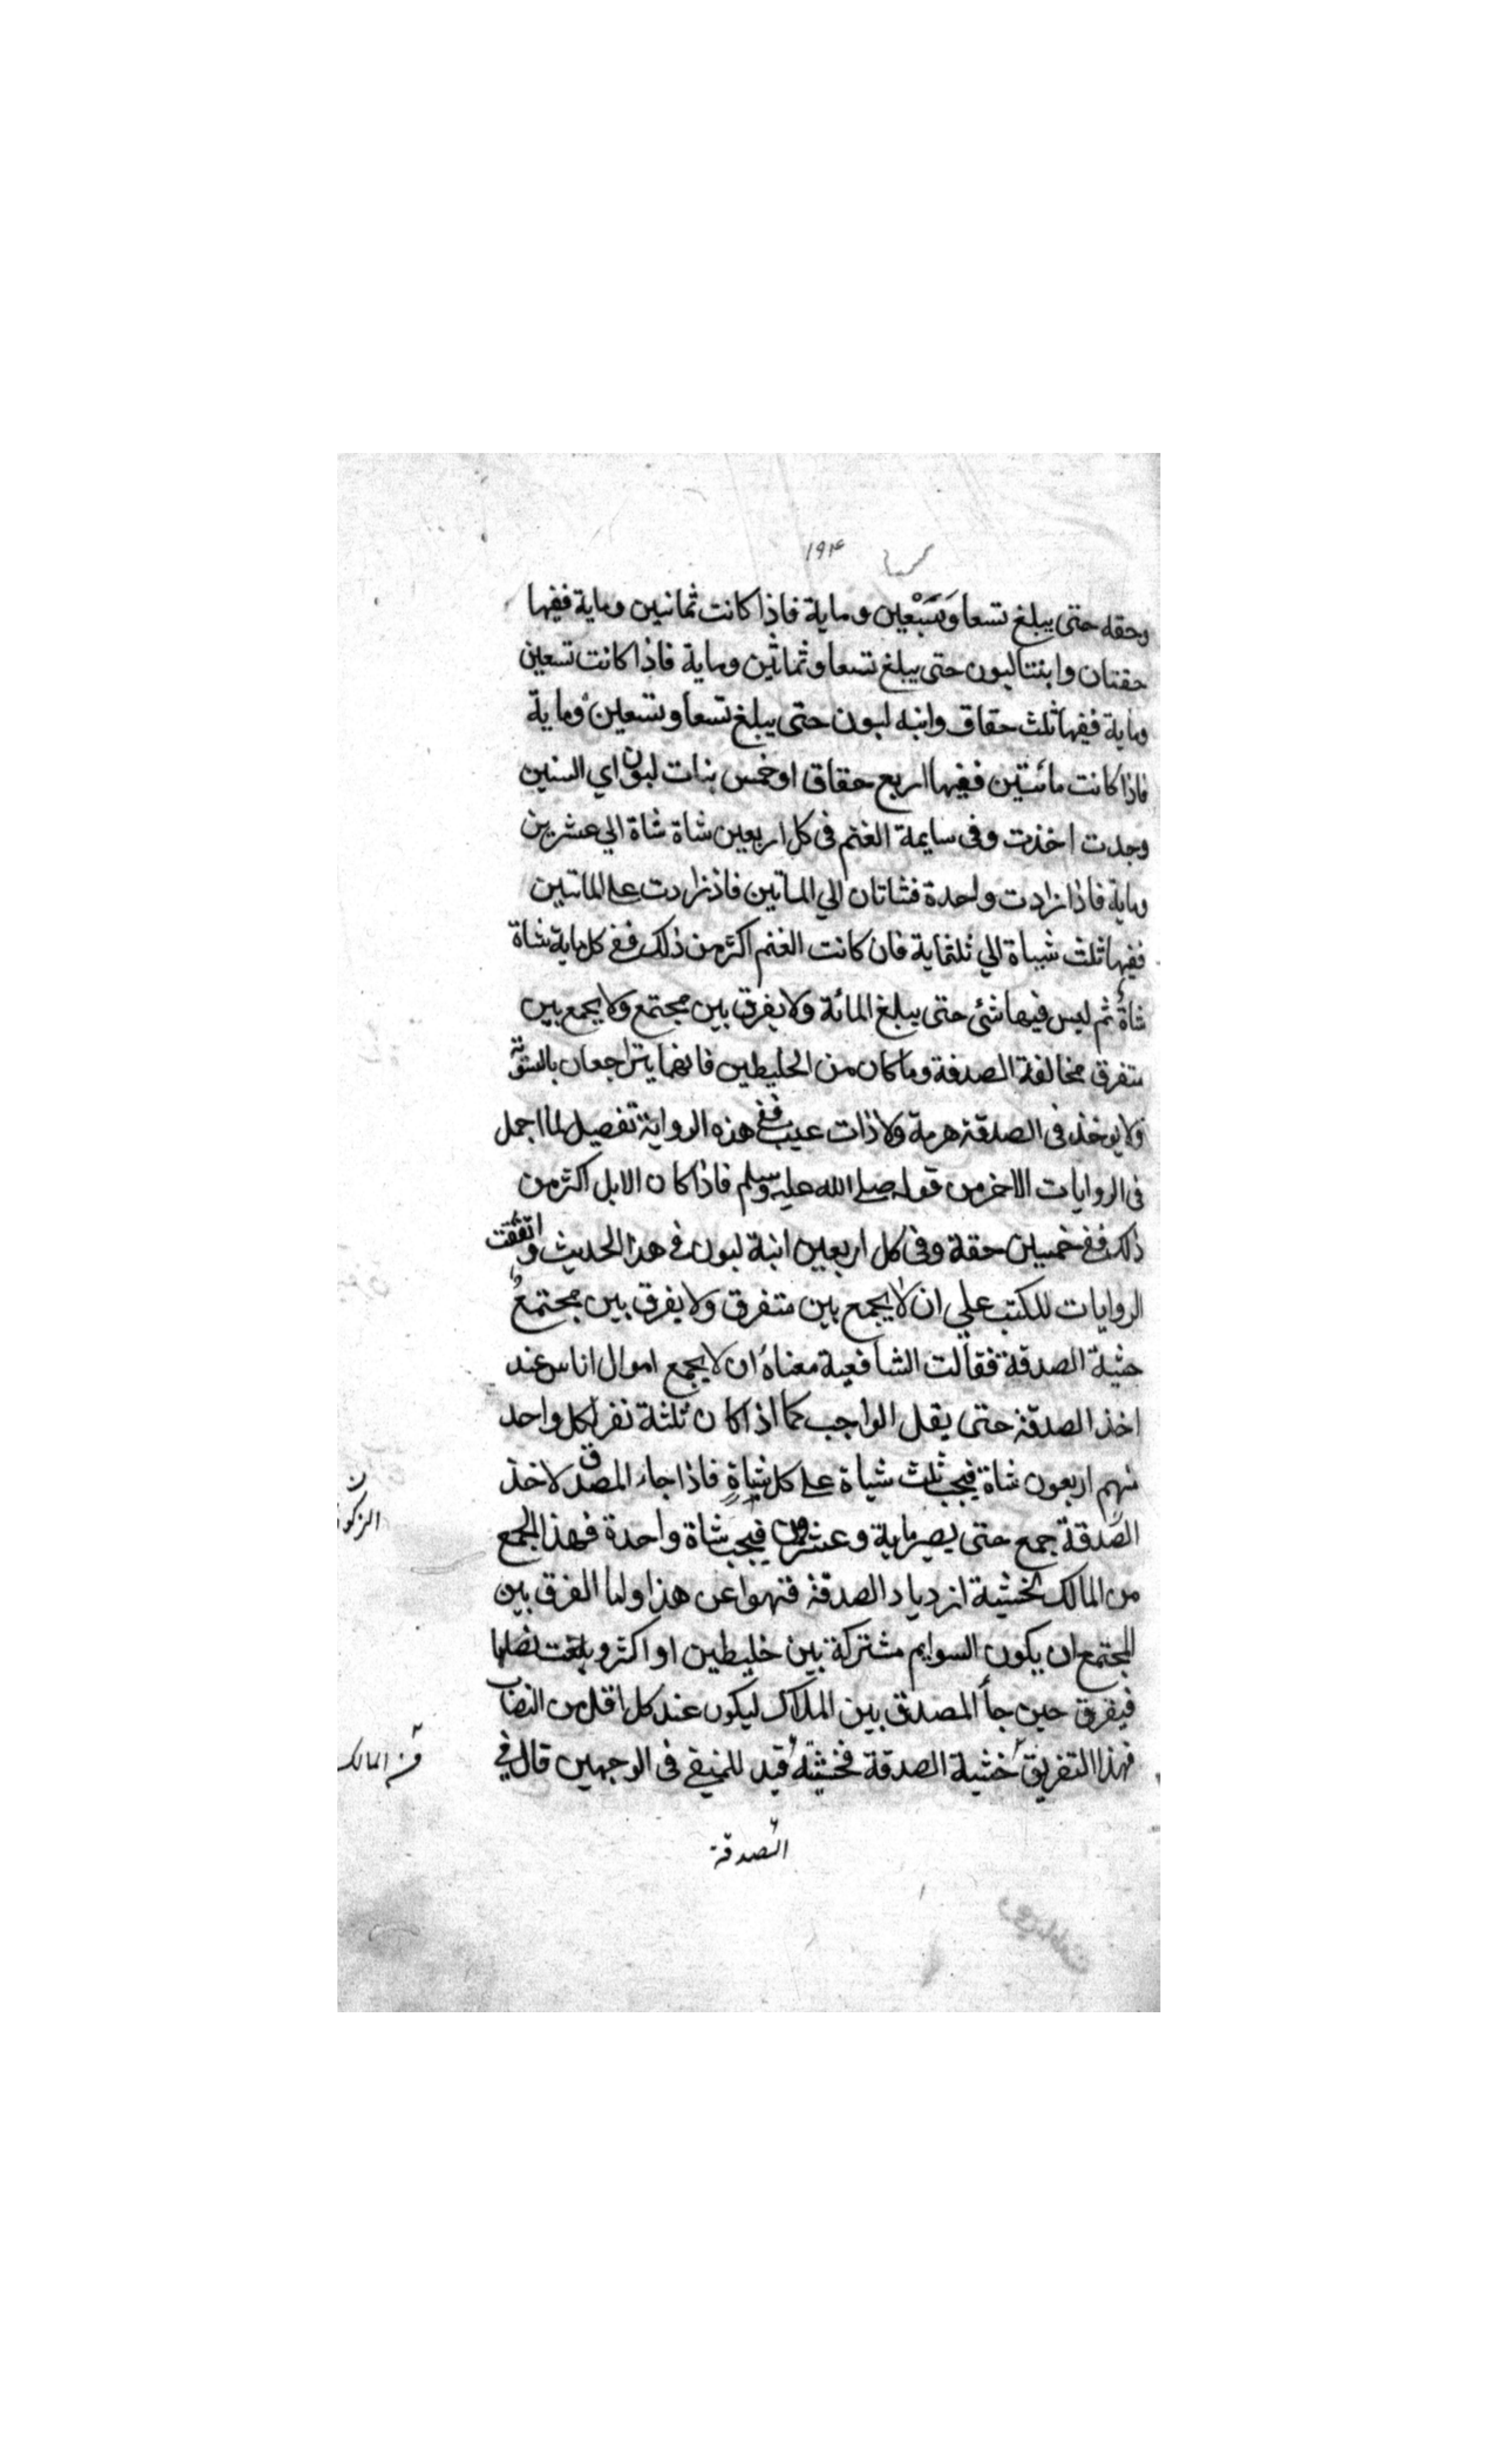 ١٩٤
وحقه حتى يبلغ تسعا وَسَبْعين وماية فاذا كانت ثمانين وماية ففيها
حقتان وابنتا لبون حتى يبلغ تسعا وثمانين وماية فاذا كانت تسعين
وماية ففيها ثلث حقاق وابنه لبون حتى يبلغ تسعا وتسعين وماية
فاذا كانت مائتين ففيها اربع حقاق او خمس بنات لبون اي السنين
وجدت اخذت وفى سايمة الغنم فى كل اربعين شاة شاة الي عشرين
وماية فاذا زادت واحدة فشاتان الي الماتين فاذ زادت على الماتين
ففيها ثلث شياة الي ثلثماية فان كانت الغنم اكثر من ذلك ففى كل ماية شاة
شاة ثم ليس فيها شئ حتى يبلغ المائة ولا يفرق بين مجتمع ولا يجمع بين
متفرق مخالفة الصدقة وما كان من الخليطين فانهما يتراجعان بالسوية
ولا يوخذ فى الصدقة هرمة ولا ذات عيب ففى هذه الرواية تفصيل لما اجمل
فى الروايات الاخر من قوله صلى الله عليه وسلم فاذا كان الابل اكثر من
ذلك ففى خمسين حقة وفى كل اربعين ابنة لبون فى هذا الحديث واتفقت
الروايات للكتب علي ان لا يجمع بين متفرق ولا يفرق بين مجتمع
خشية الصدقة فقالت الشافعية معناه ان لا يجمع اموال اناس عند
اخذ الصدقة حتى يقل الواجب كما اذا كان ثلثة نفر لكل واحد
منهم اربعون شاة فيجب ثلث شياة على كل شياةٍ فاذا جاء المصدق لاخذ
الصدقة جمع حتى يصير ماية وعشرون فيجب شاة واحدة فهذا الجمع
من المالك لخشية ازدياد الصدقة فنهوا عن هذا ولما الفرق بين
المجتمع ان يكون السوايم مشتركة بين خليطين او اكثر وبلغت نصابا
فيفرق حين جأ المصدق بين الملاك ليكون عند كل اقل من النصاب
فهذا التفريق خشية الصدقة فخشيته قيد للمنفي فى الوجهين قال فى
الزكو
من المالك
الصدقة